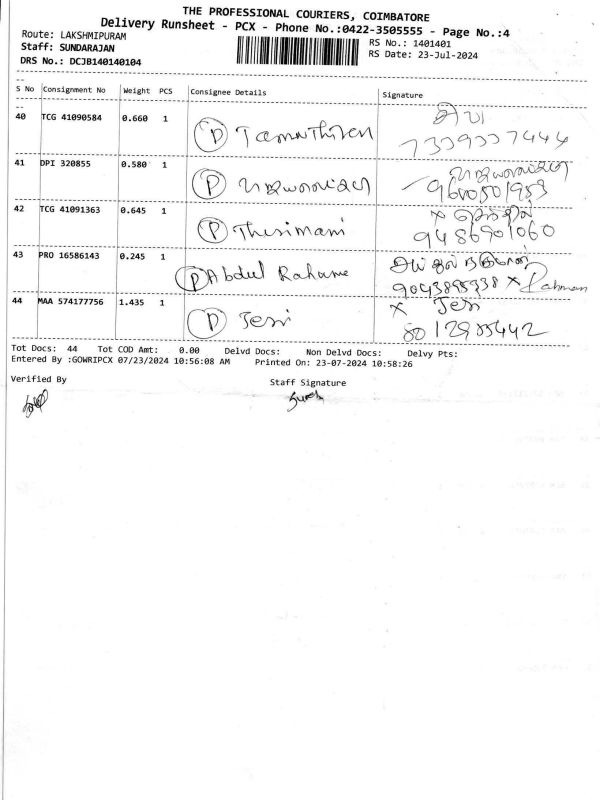 THE PROFESSIONAL COURIERS, COIMBATORE
Delivery Runsheet - PCX - Phone No.:0422-3505555 - Page No.:4
Route: LAKSHMIPURAM
RS No.: 1401401
Staff: SUNDARAJAN
RS Date: 23-Jul-2024
DRS No.: DCJB140140104
S No Consignment No Weight PCS Consignee Details Signature
40 TCG 41090584 0.660 1 P
41 DPI 320855 0.580 1 P
9600501953
42 TCG 41091363 0.645 1 P Thenimani X
9486901060
43 PRO 16586143 0.245 1 P Abdul Rahame
X Rahman
44 MAA 574177756 1.435 1 P Jeni X Jeni
Tot Docs: 44 Tot COD Amt: 0.00 Delvd Docs: Non Delvd Docs: Delvy Pts:
Entered By :GOWRIPCX 07/23/2024 10:56:08 AM Printed On: 23-07-2024 10:58:26
Verified By
Staff Signature